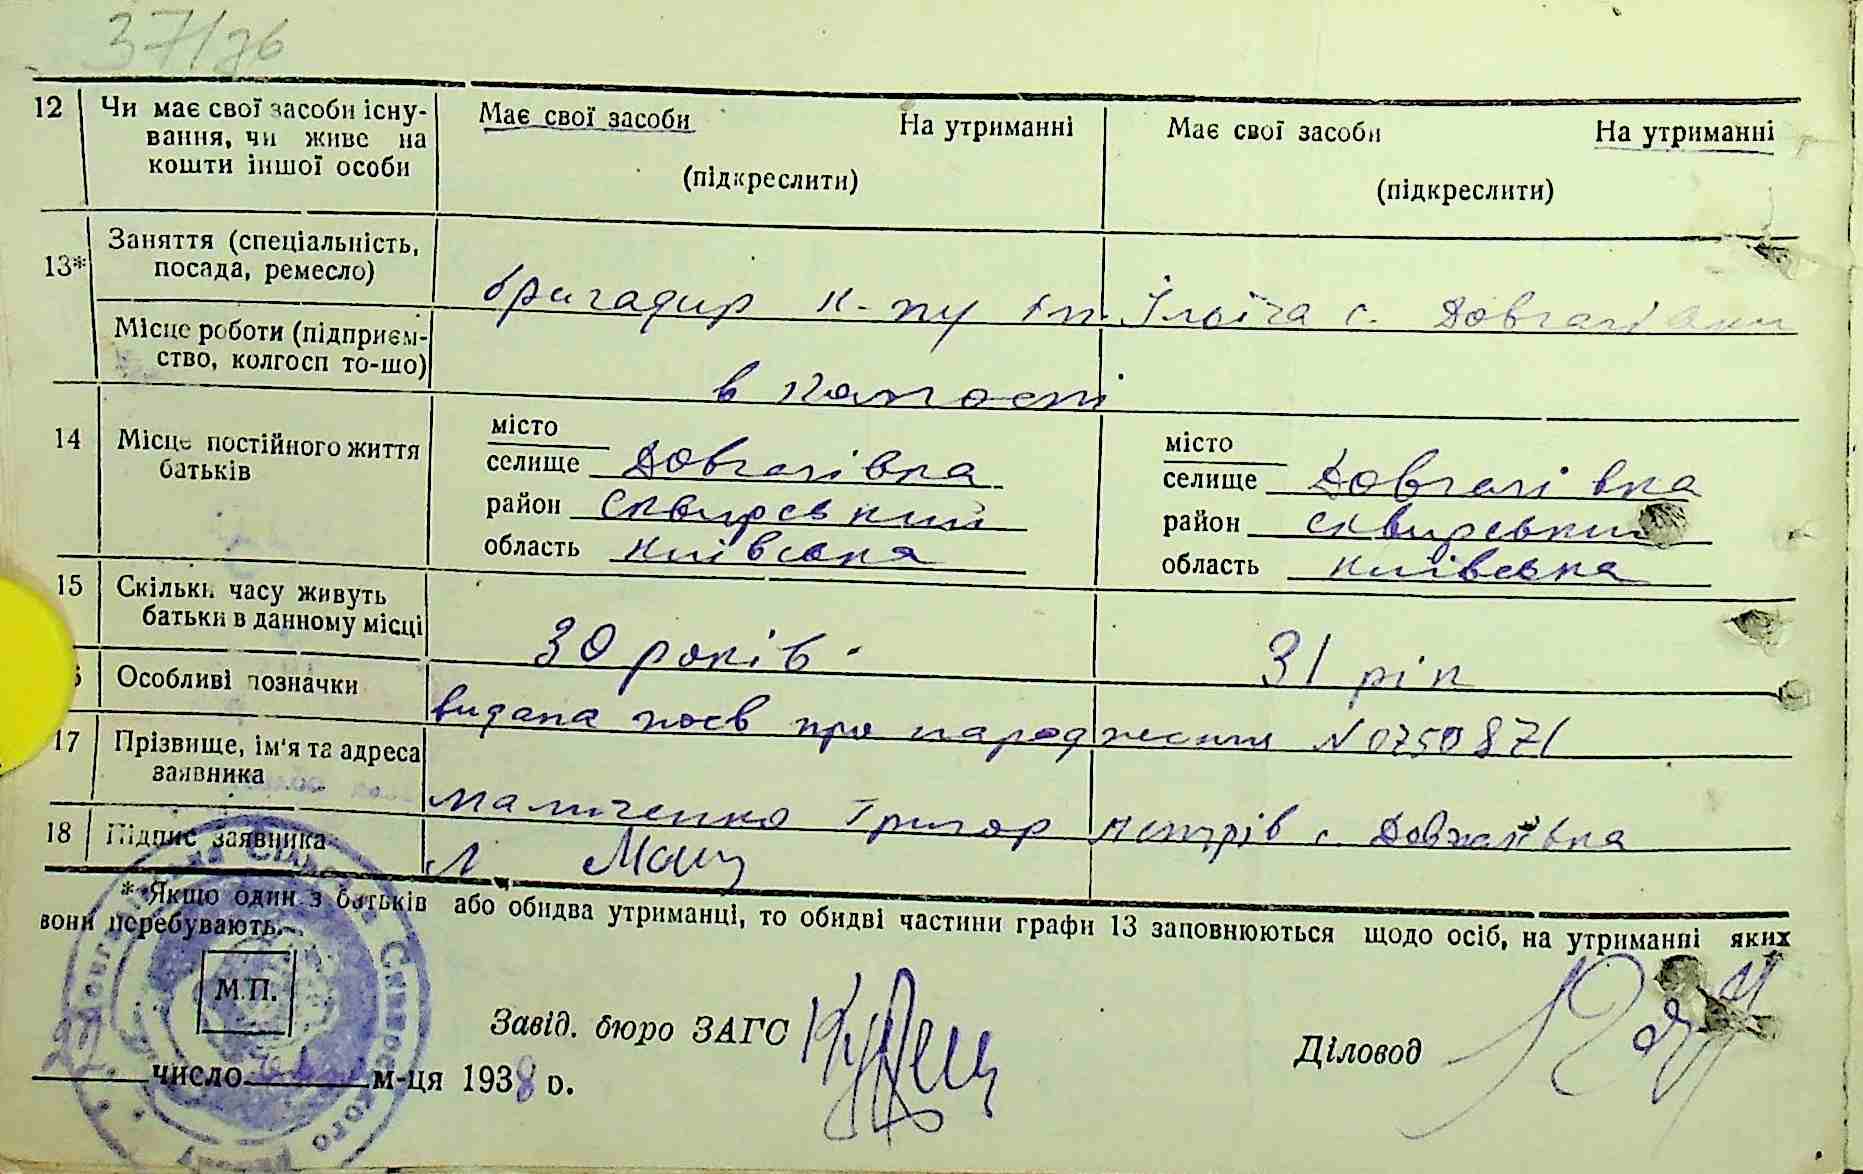 37/26
12 Чи має свої засоби існування, чи живе на кошти іншої особи
Має свої засоби На утриманні
(підкреслити)
Має свої засоби На утриманні
(підкреслити)
13* Заняття (спеціальність, посада, ремесло)
бригадир к-пу Ілліча с. Довгалівки
Місце роботи (підприємство, колгосп то-що)
в
14 Місце постійного життя батьків
місто
селище Довгалівка
район Сквирський
область Київська
місто
селище Довгалівка
район Сквирський
область Київська
15 Скільки часу живуть батьки в данному місці
30 років
31 рік
Особливі позначки
видана посв про народження N 0750871
17 Прізвище, ім'я та адреса заявника
Григор с. Довжалівка
18 Підпис заявника
* Якщо один з батьків або обидва утриманці, то обидві частини графи 13 заповнюються щодо осіб, на утриманні яких
вони перебувають.
М.П.
Завід. бюро ЗАГС
Діловод
число м-ця 1938 р.